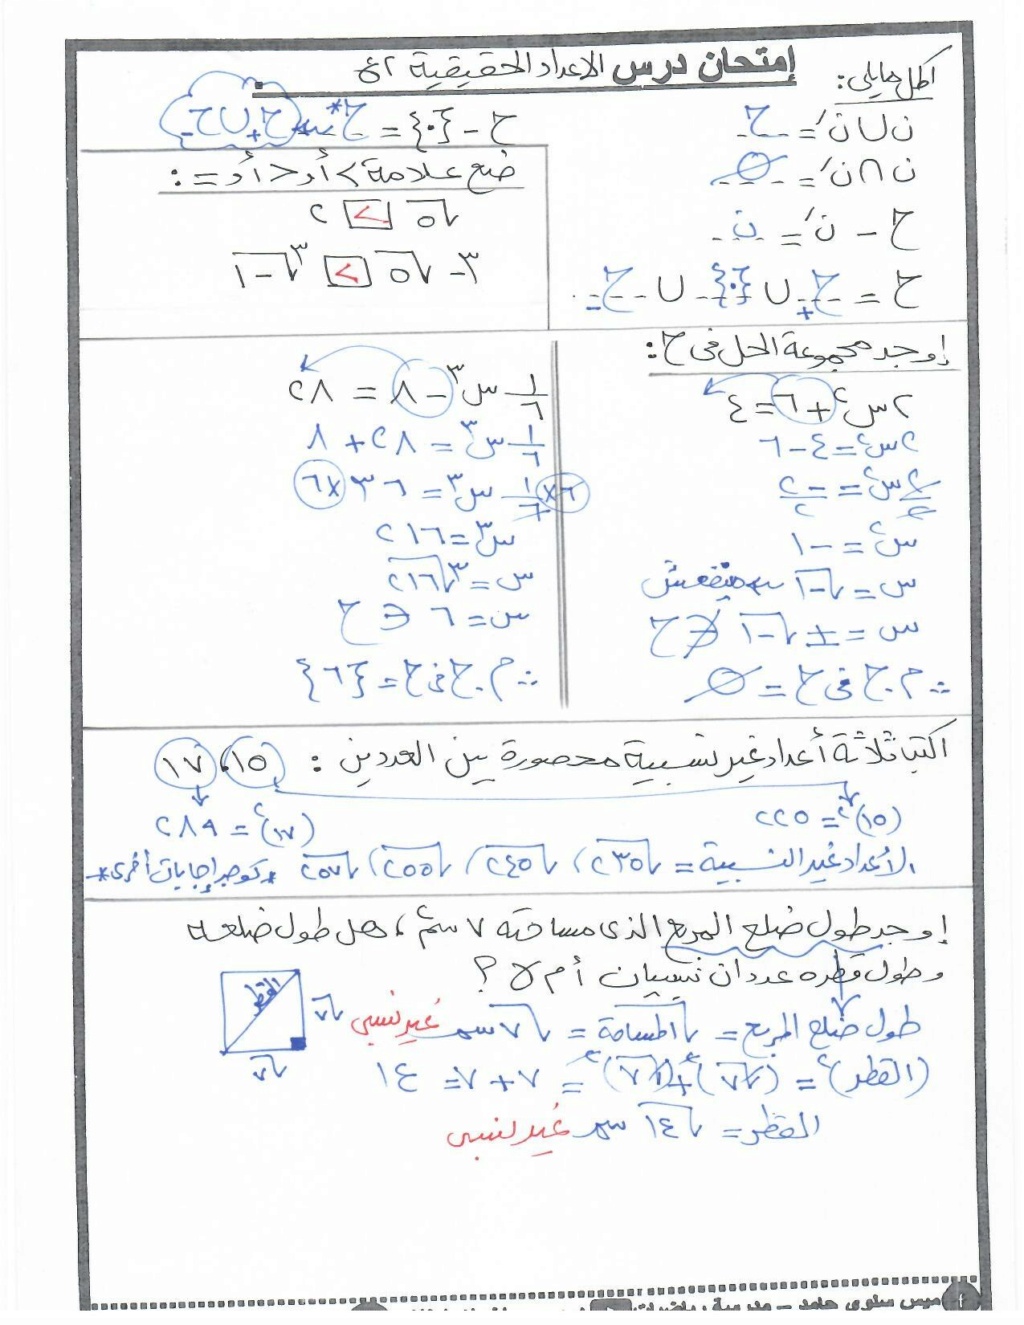 إمتحان درس الاعداد الحقيقية ٢ع
اكمل مايلى:
ن ∪ ن' = ح
ح - {٠} = ح* = ح₊ ∪ ح₋
ن ∩ ن' = ∅
ح - ن' = ن
ح = ح₊ ∪ {٠} ∪ ح₋
ضع علامة > أو < أو = :
√٥ > ٢
٣ - √٥ > ∛-١
إوجد مجموعة الحل فى ح :
٢س² + ٦ = ٤
٢س² = ٤ - ٦
٢س²/٢ = -٢/٢
س² = -١
س = √-١ مينفعش
س = ± √-١ ∉ ح
∴ م.ح فى ح = ∅
١/٦ س³ - ٨ = ٢٨
١/٦ س³ = ٢٨ + ٨
٦× ١/٦ س³ = ٣٦ ×٦
س³ = ٢١٦
س = ∛٢١٦
س = ٦ ∈ ح
∴ م.ح فى ح = {٦}
اكتب ثلاثة أعداد غير نسبية محصورة بين العددين : ١٥، ١٧
(١٥)² = ٢٢٥
(١٧)² = ٢٨٩
الأعداد غير النسبية = √٢٣٥، √٢٤٥، √٢٥٥، √٢٥٧ *توجد إجابات أخرى*
إوجد طول ضلع المربع الذى مساحته ٧ سم²، هل طول ضلعه
وطول قطره عددان نسبيان أم لا ؟
طول ضلع المربع = √المساحة = √٧ سم غير نسبى
(القطر)² = (√٧)² + (√٧)² = ٧ + ٧ = ١٤
القطر = √١٤ سم غير نسبى
القطر
√٧
√٧
ميس سلوى حامد - مدرسة رياضيات